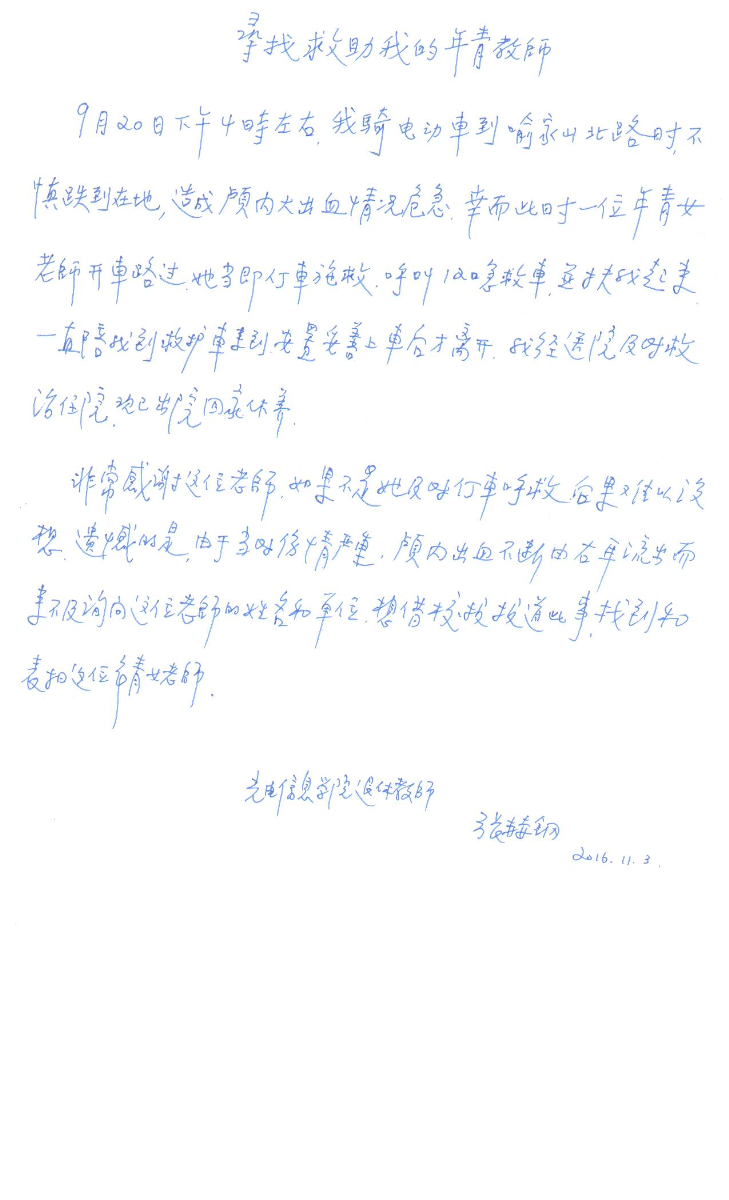 尋找救助我的年青教師
9月20日下午4時左右,我騎電动車到喻家山北路时,不
慎跌到在地,造成颅内大出血情况危急.幸而此时一位年青女
老師开車路过.她当即停車施救.呼叫120急救車,並扶我起来
一直陪我到救护車来到安置妥善上車后才离开.我经医院及时救
治住院,现已出院回家休养.
非常感谢这位老師.如果不是她及时停車呼救后果难以设
想.遗憾的是,由于当时傷情严重,颅内出血不断由右耳流出而
来不及询问这位老師的姓名和单位.想借校报报道此事,找到和
表扬这位年青女老師.
光电信息学院退休教師
2016.11.3.